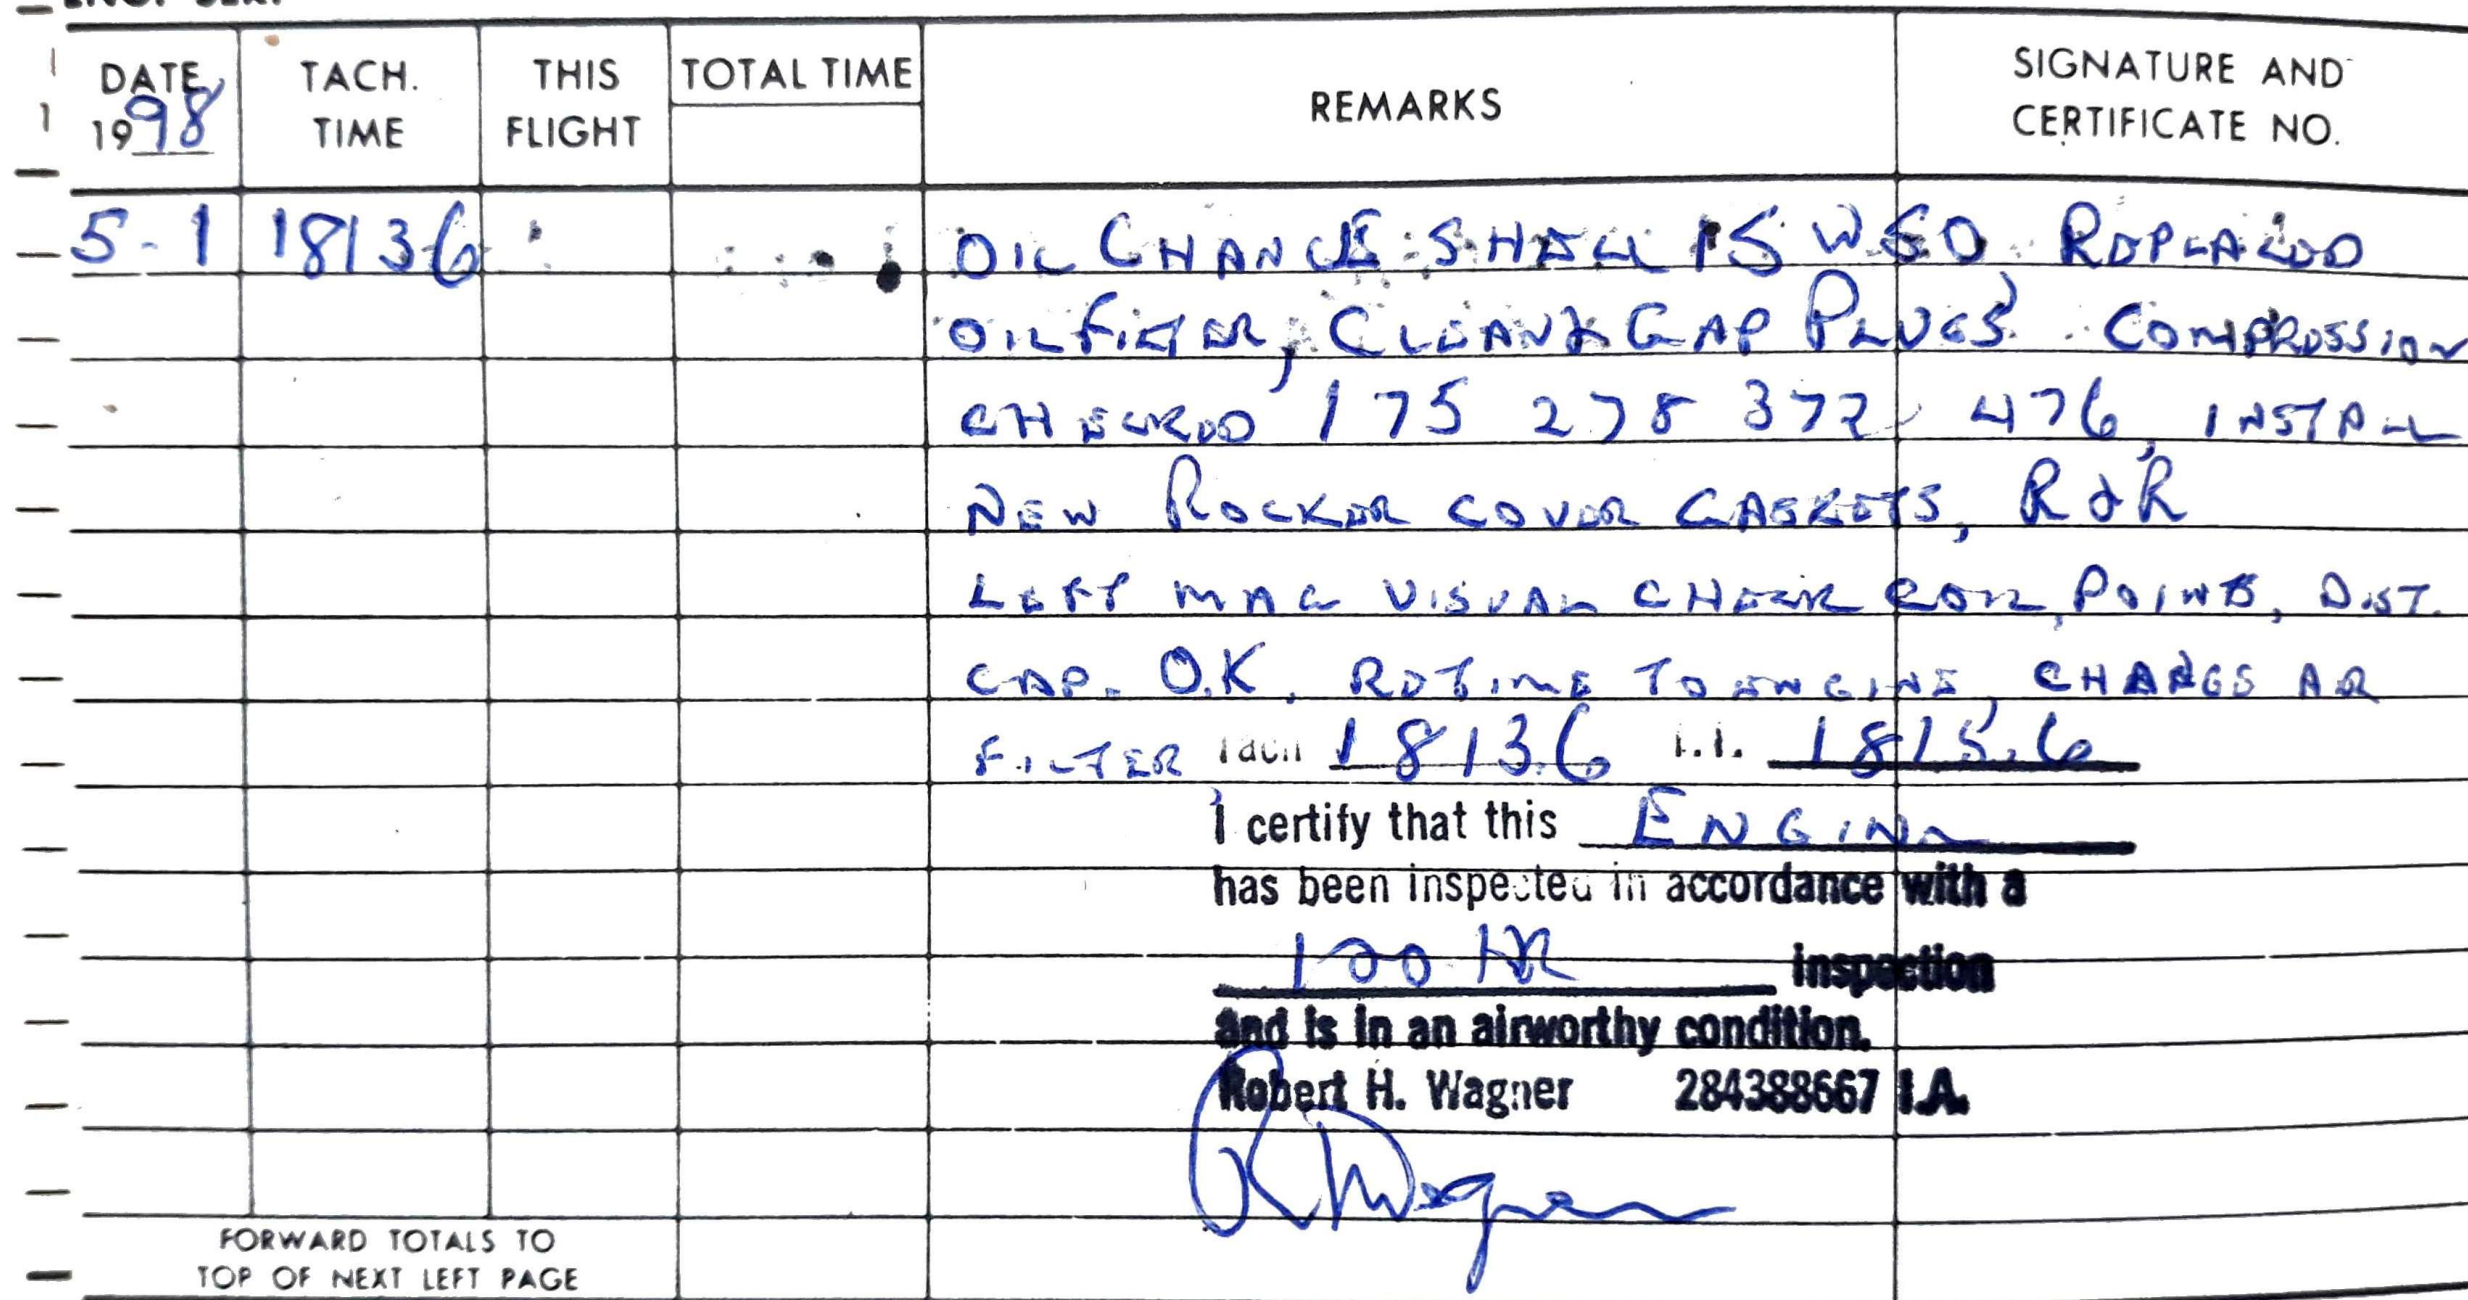 DATE TACH. THIS TOTAL TIME REMARKS SIGNATURE AND
1998 TIME FLIGHT CERTIFICATE NO.
5-1 1813.6 OIL CHANGE SHELL 15W50, REPLACED
OIL FILTER, CLEAN & GAP PLUGS. COMPRESSION
CHECKED 175 278 372 476, INSTALL
NEW ROCKER COVER GASKETS, R & R
LEFT MAG VISUAL CHECK COIL, POINTS, DIST.
CAP. O.K. RETIME TO ENGINE, CHANGE AIR
FILTER Tach 1813.6 T.T. 1813.6
I certify that this ENGINE
has been inspected in accordance with a
100 HR inspection
and is in an airworthy condition.
Robert H. Wagner 284388667 I.A.
R H Wagner
FORWARD TOTALS TO
TOP OF NEXT LEFT PAGE